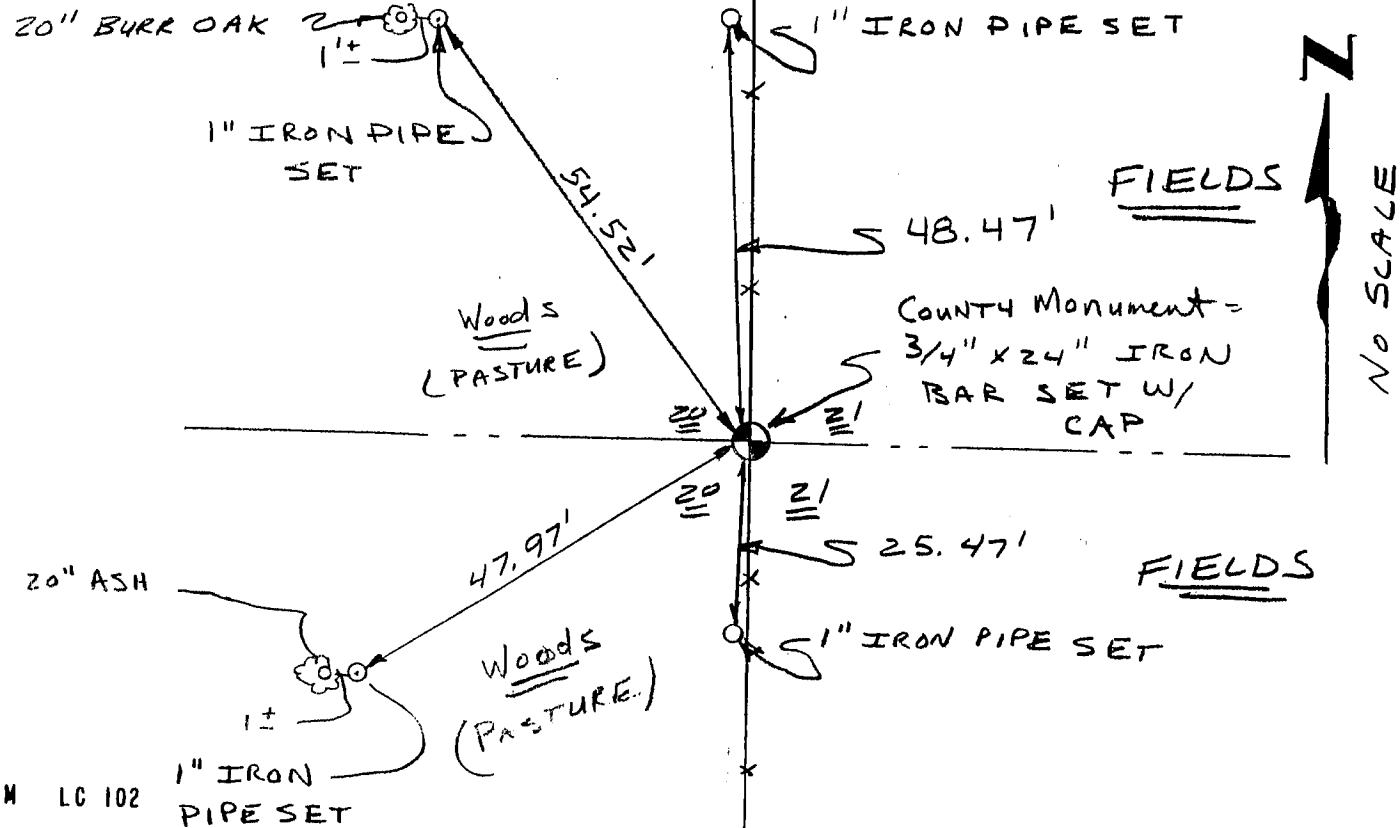 20" BURR OAK
1'±
1" IRON PIPE
SET
1" IRON PIPE SET
N
NO SCALE
FIELDS
54.52'
48.47'
Woods
(PASTURE)
COUNTY Monument =
3/4" x 24" IRON
BAR SET W/
CAP
20
21
20
21
47.97'
25.47'
FIELDS
20" ASH
1" IRON PIPE SET
Woods
(PASTURE)
1±
1" IRON
PIPE SET
M LC 102